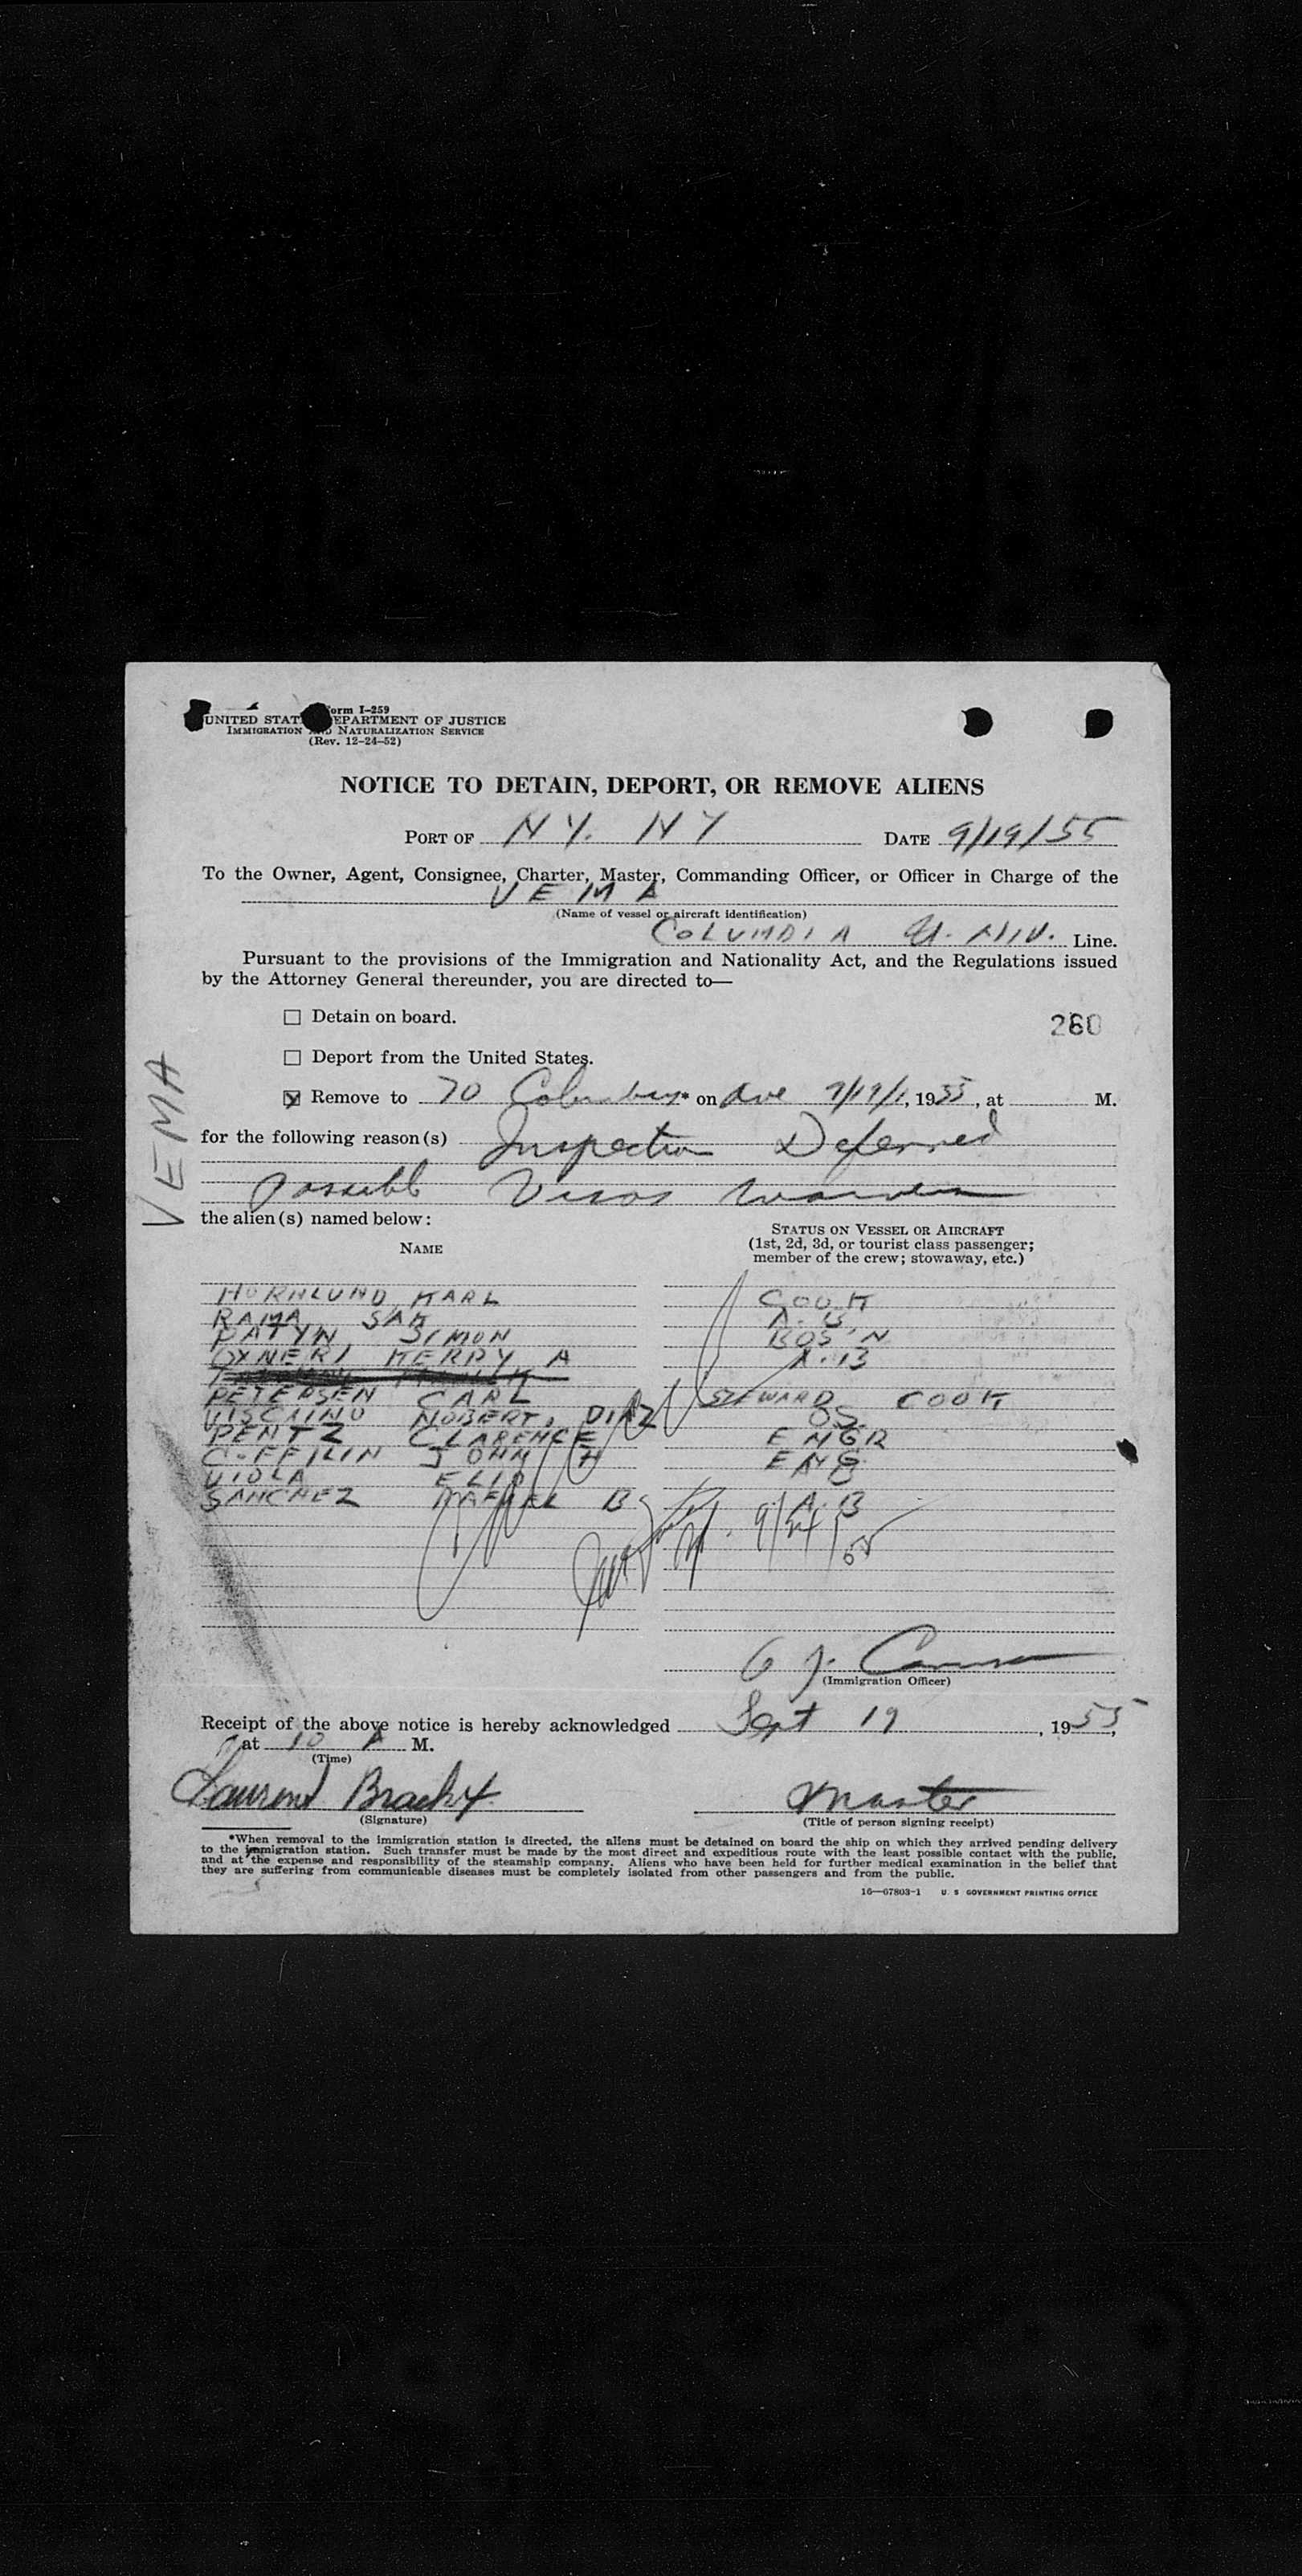 Form I-259
UNITED STAT DEPARTMENT OF JUSTICE
IMMIGRATION AND NATURALIZATION SERVICE
(Rev. 12-24-52)
NOTICE TO DETAIN, DEPORT, OR REMOVE ALIENS
PORT OF N Y. N Y DATE 9/19/55
To the Owner, Agent, Consignee, Charter, Master, Commanding Officer, or Officer in Charge of the
VEMA
(Name of vessel or aircraft identification)
COLUMBIA UNIV. Line.
Pursuant to the provisions of the Immigration and Nationality Act, and the Regulations issued
by the Attorney General thereunder, you are directed to—
☐ Detain on board.
260
☐ Deport from the United States.
☒ Remove to 70 Columbus* on Ave 9/19/, 1955, at M.
VEMA
for the following reason(s) Inspection Deferred
Possible Visas
the alien(s) named below:
NAME
STATUS ON VESSEL OR AIRCRAFT
(1st, 2d, 3d, or tourist class passenger;
member of the crew; stowaway, etc.)
HORNLUND KARL COOK
RAMA SAK A.B.
PATYN SIMON BOS'N
KERRY A A.B
PETERSEN CARL STEWARD COOK
VISCAINO NOBERT, DIAZ OS.
PENTZ CLARENCE ENGR
JOHN H ENG
VIOLA ELIO AB
SANCHEZ RAFAEL B A.B
9/24/55
(Immigration Officer)
Receipt of the above notice is hereby acknowledged Sept 19, 1955,
at 10 A M.
(Time)
Master
(Signature)
(Title of person signing receipt)
*When removal to the immigration station is directed, the aliens must be detained on board the ship on which they arrived pending delivery
to the immigration station. Such transfer must be made by the most direct and expeditious route with the least possible contact with the public,
and at the expense and responsibility of the steamship company. Aliens who have been held for further medical examination in the belief that
they are suffering from communicable diseases must be completely isolated from other passengers and from the public.
16—67803-1 U. S. GOVERNMENT PRINTING OFFICE